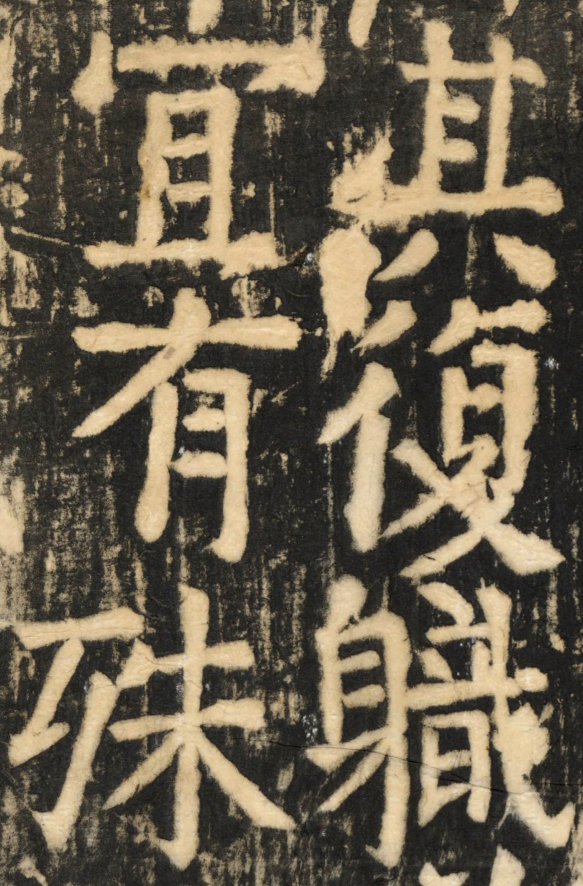 其復軄
宜有殊